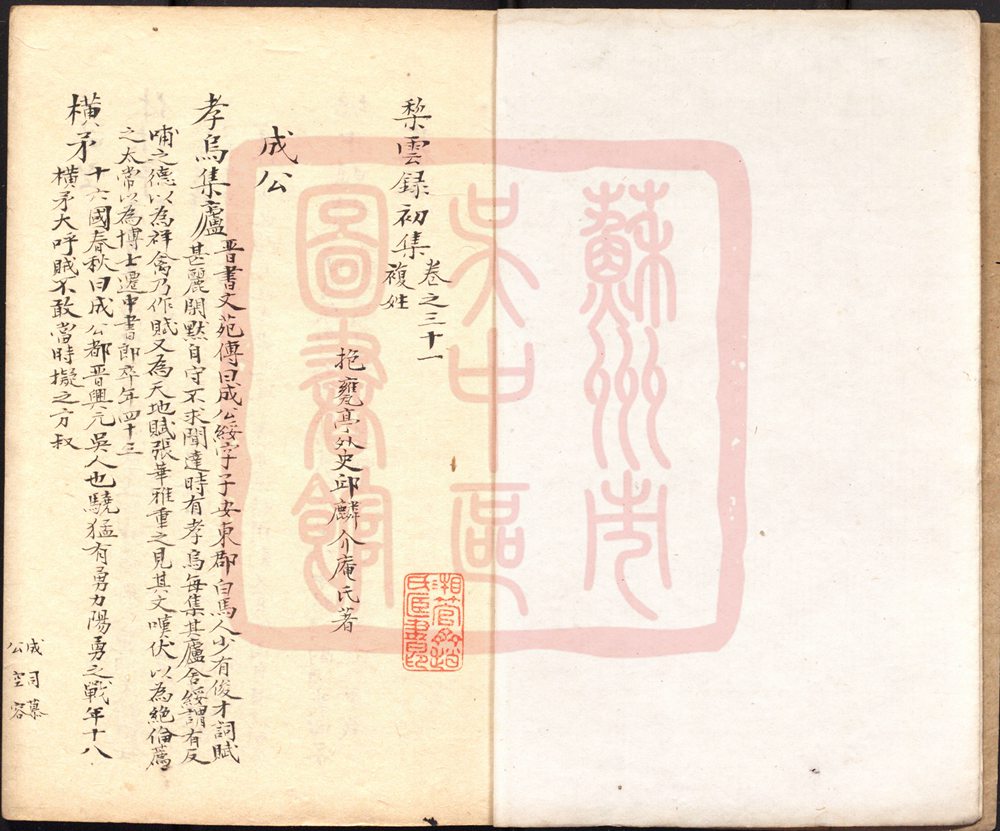 蘇州市
吴中區
圖書館
棃雲録初集卷之三十一
複姓
抱甕亭外史邱麟介庵氏著
成公
孝烏集廬
晋書文苑傳曰成公綏字子安東郡白馬人少有俊才詞賦
甚麗閑默自守不求聞達時有孝烏每集其廬舍綏謂有反
哺之德以為祥禽乃作賦又為天地賦張華雅重之見其文嘆伏以為絕倫薦
之太常以為博士遷中書郎卒年四十三
橫矛
十六國春秋曰成公都晋興元吳人也驍猛有勇力陽勇之戰年十八
橫矛大呼賊不敢當時擬之方叔
成公
司空
慕容